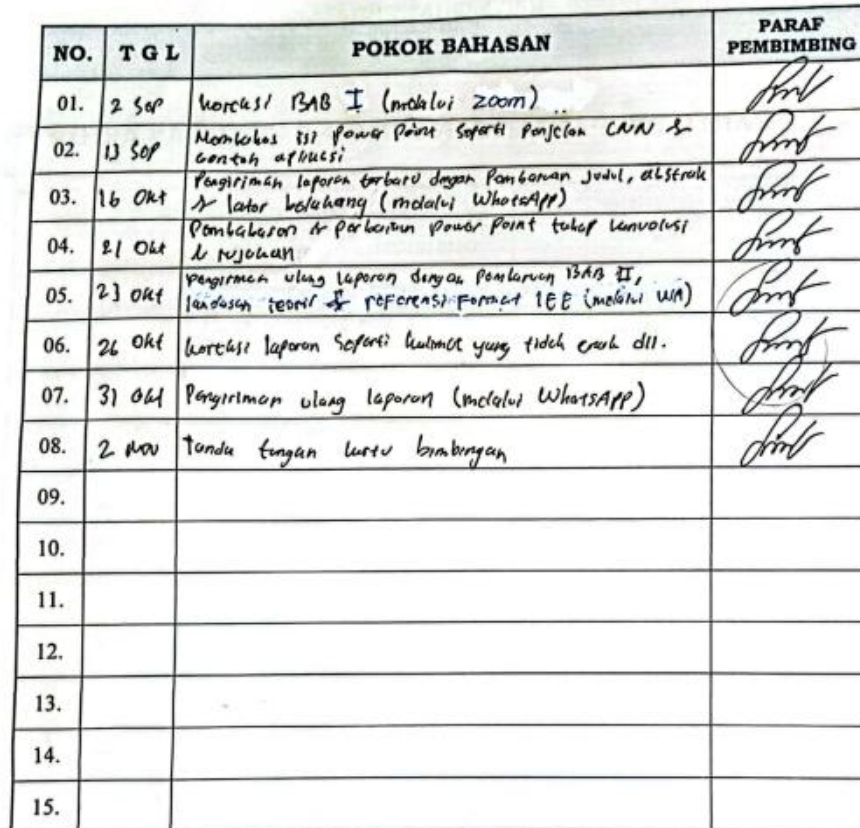 NO. TGL POKOK BAHASAN PARAF PEMBIMBING
01. 2 Sep koreksi BAB I (melalui zoom)
02. 13 Sep Membahas isi Power Point seperti Penjelan CNN &
contoh aplikasi
03. 16 Okt Pengiriman laporan terbaru dengan Pembaruan judul, abstrak
& latar belakang (melalui WhatsApp)
04. 21 Okt Pembahasan & Perbaikan Power Point tahap konvolusi
& rujukan
05. 23 Okt Pengiriman ulang laporan dengan Pembaruan BAB II,
landasan teori & referensi Format IEE (melalui WA)
06. 26 Okt koreksi laporan seperti kalimat yang tidak enak dll.
07. 31 Okt Pengiriman ulang laporan (melalui WhatsApp)
08. 2 Nov Tanda tangan kartu bimbingan
09.
10.
11.
12.
13.
14.
15.